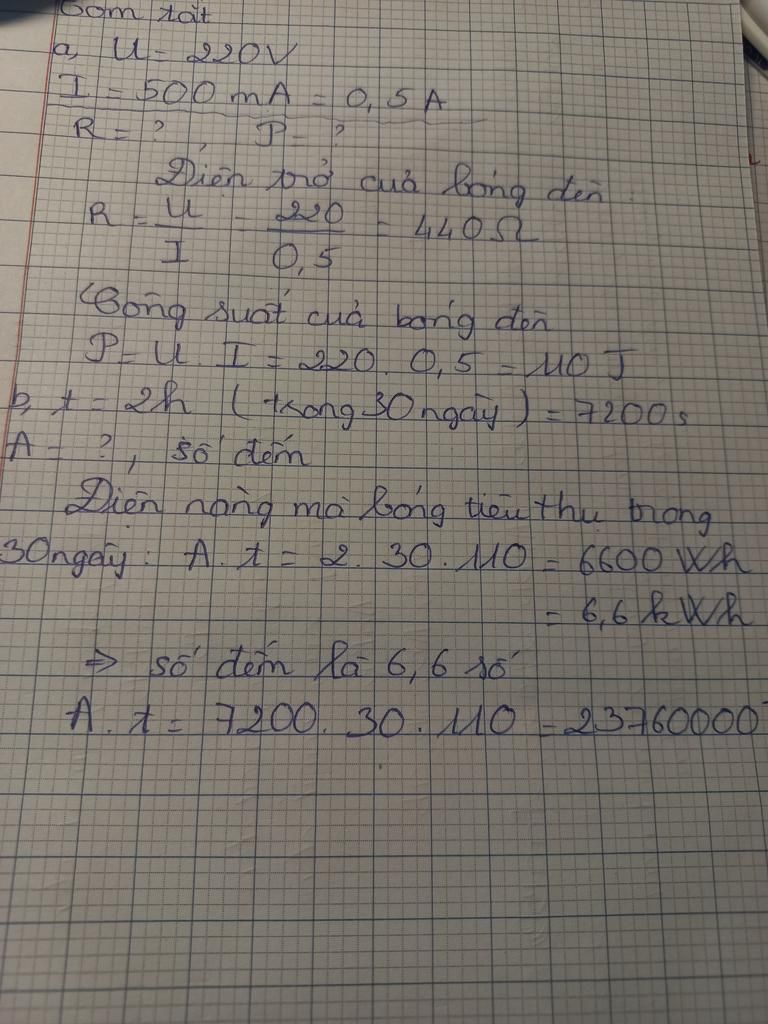 Tóm tắt
a, U = 220V
I = 500 mA = 0,5 A
R = ? , P = ?
Điện trở của bóng đèn :
R = U/I = 220/0,5 = 440 Ω
Công suất của bóng đèn
P = U . I = 220 . 0,5 = 110 J
b, t = 2h ( trong 30 ngày ) = 7200s
A = ? , số đếm
Điện năng mà bóng tiêu thụ trong
30 ngày : A . t = 2 . 30 . 110 = 6600 Wh
= 6,6 kWh
⇒ số đếm là 6,6 số
A . t = 7200 . 30 . 110 = 23760000